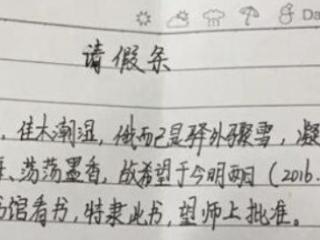 Da
请假条
，佳木潮湿，俄而已是驿外骤雪，凝
、荡荡墨香，故希望于今明两日（2016.
馆看书，特隶此书，望师上批准。